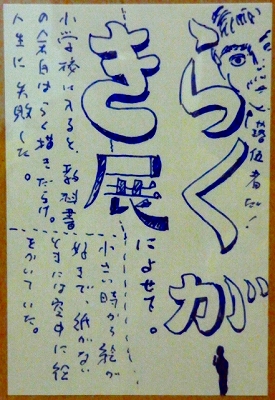 らくが
き展
によせて。
小さい時から絵が
好きで、紙がない
ときには空中に絵
をかいていた。
小学校に入ると、教科書
の余白はらく描きだらけ。
人生に失敗した。